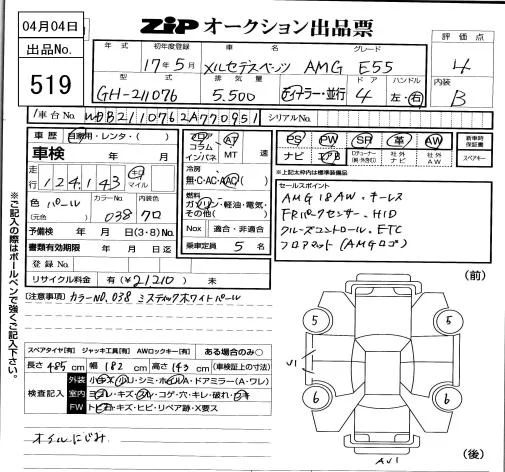 04月04日
ZiP オークション出品票
出品No.
519
年式
初年度登録
車名
グレード
評価点
17年5月
メルセデスベンツ
AMG E55
4
型式
排気量
ドア
ハンドル
内装
GH-211076
5.500
ディーラー・並行
4
左・右
B
車台No.
WDB2110762A770951
シリアルNo.
車歴
自家用・レンタ・( )
フロア
コラム
インパネ
AT
MT
速
PS
PW
SR
革
AW
新車時保証書
ナビ
エアB
社外ナビ
社外AW
スペアキー
車検
年 月
走行
124.143
キロ
マイル
冷房
無・C・AC・AAC
※上記太枠内は標準装備品
セールスポイント
AMG 18AW.キーレス
FRパークセンサー.HID
クルーズコントロール.ETC
フロアマット(AMGロゴ)
色
パール
(元色)
カラーNo.
038
内装色
クロ
燃料
ガソリン・軽油・電気・
その他( )
予備検
年 月 日(3・8)No.
Nox
適合・非適合
書類有効期限
年 月 日迄
乗車定員
5
名
登録No.
リサイクル料金
有(¥21210) 未
(前)
[注意事項]
カラーNO.038 ミスティックホワイトパール
※ご記入の際はボールペンで強くご記入下さい。
スペアタイヤ[有] ジャッキ工具[有] AWロックキー[有]
ある場合のみ○
長さ 485 cm 幅 182 cm 高さ 143 cm (車検証上の寸法)
検査記入
外装
小キズ・小凹・シミ・ホイルA・ドアミラー(A・ワレ)
室内
ヨゴレ・キズ・スレ・コゲ・穴・キレ・破れ・
FW
トビ石・キズ・ヒビ・リペア跡・X要ス
オイルにじみ
5
5
U1
6
6
AU1
(後)